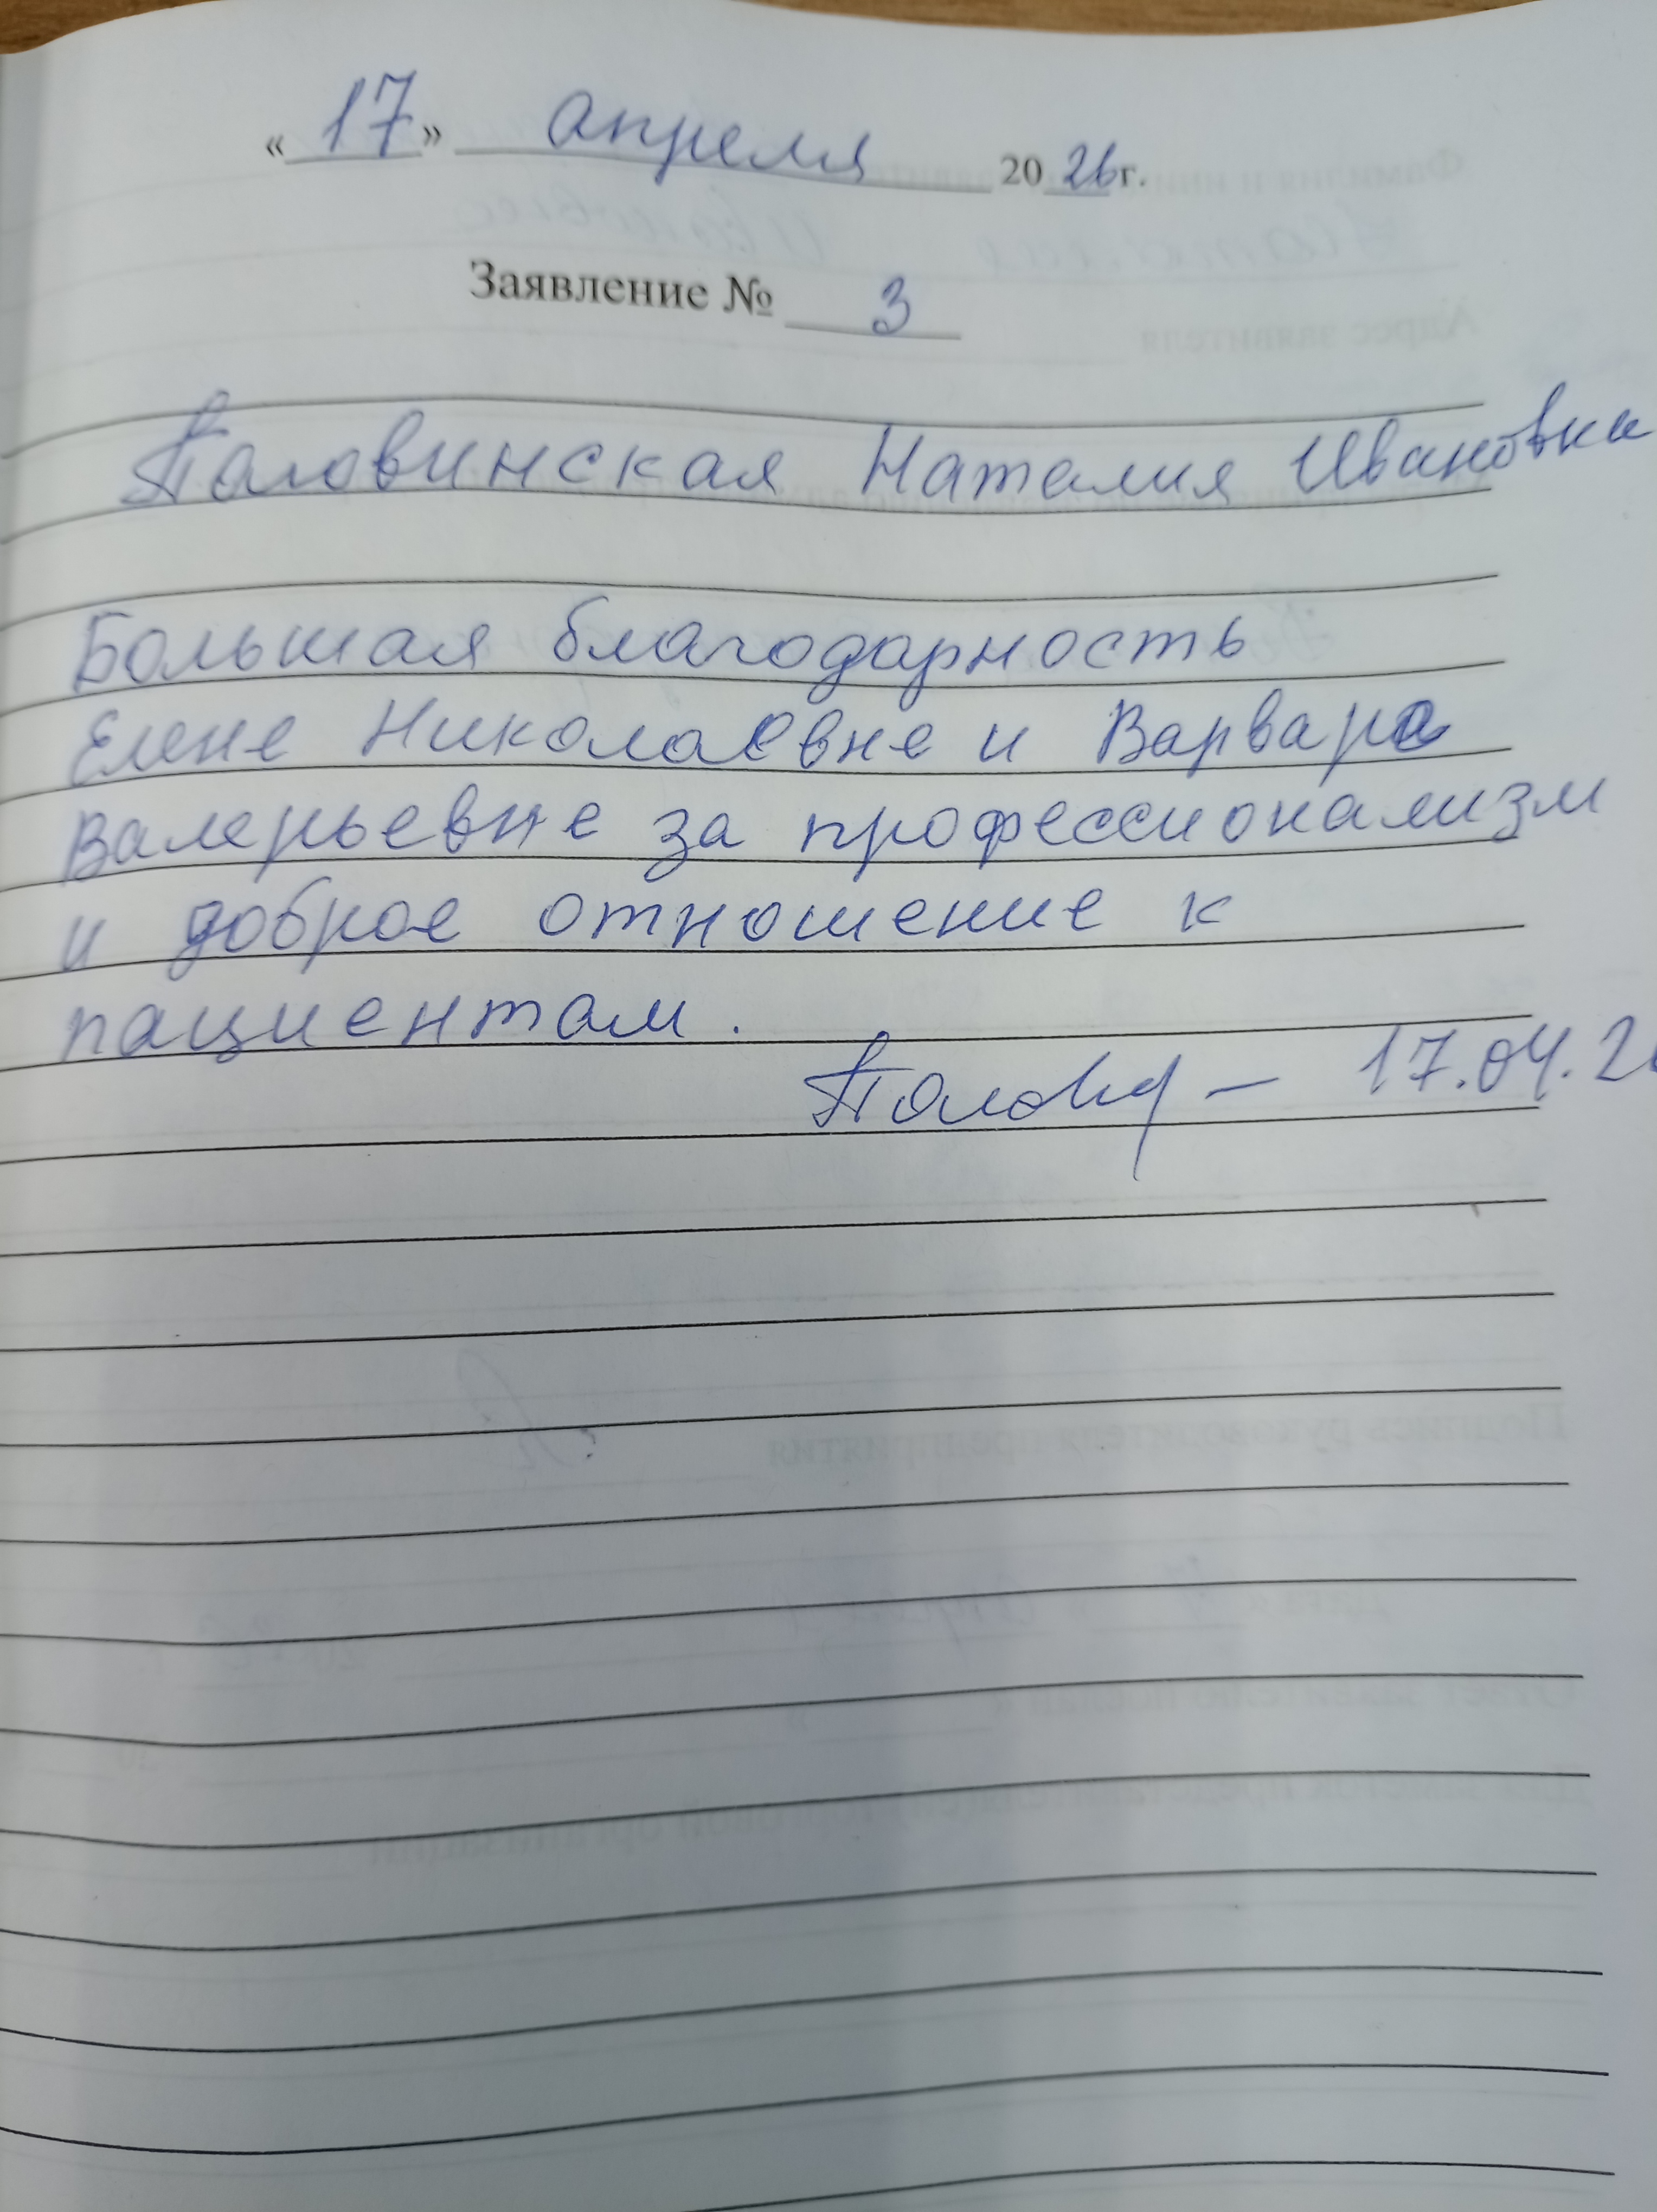 «17» апреля 2026г.
Заявление № 3
Половинская Наталия Ивановна
Большая благодарность
Елене Николаевне и Варваре
Валерьевне за профессионализм
и доброе отношение к
пациентам.
17.04.2